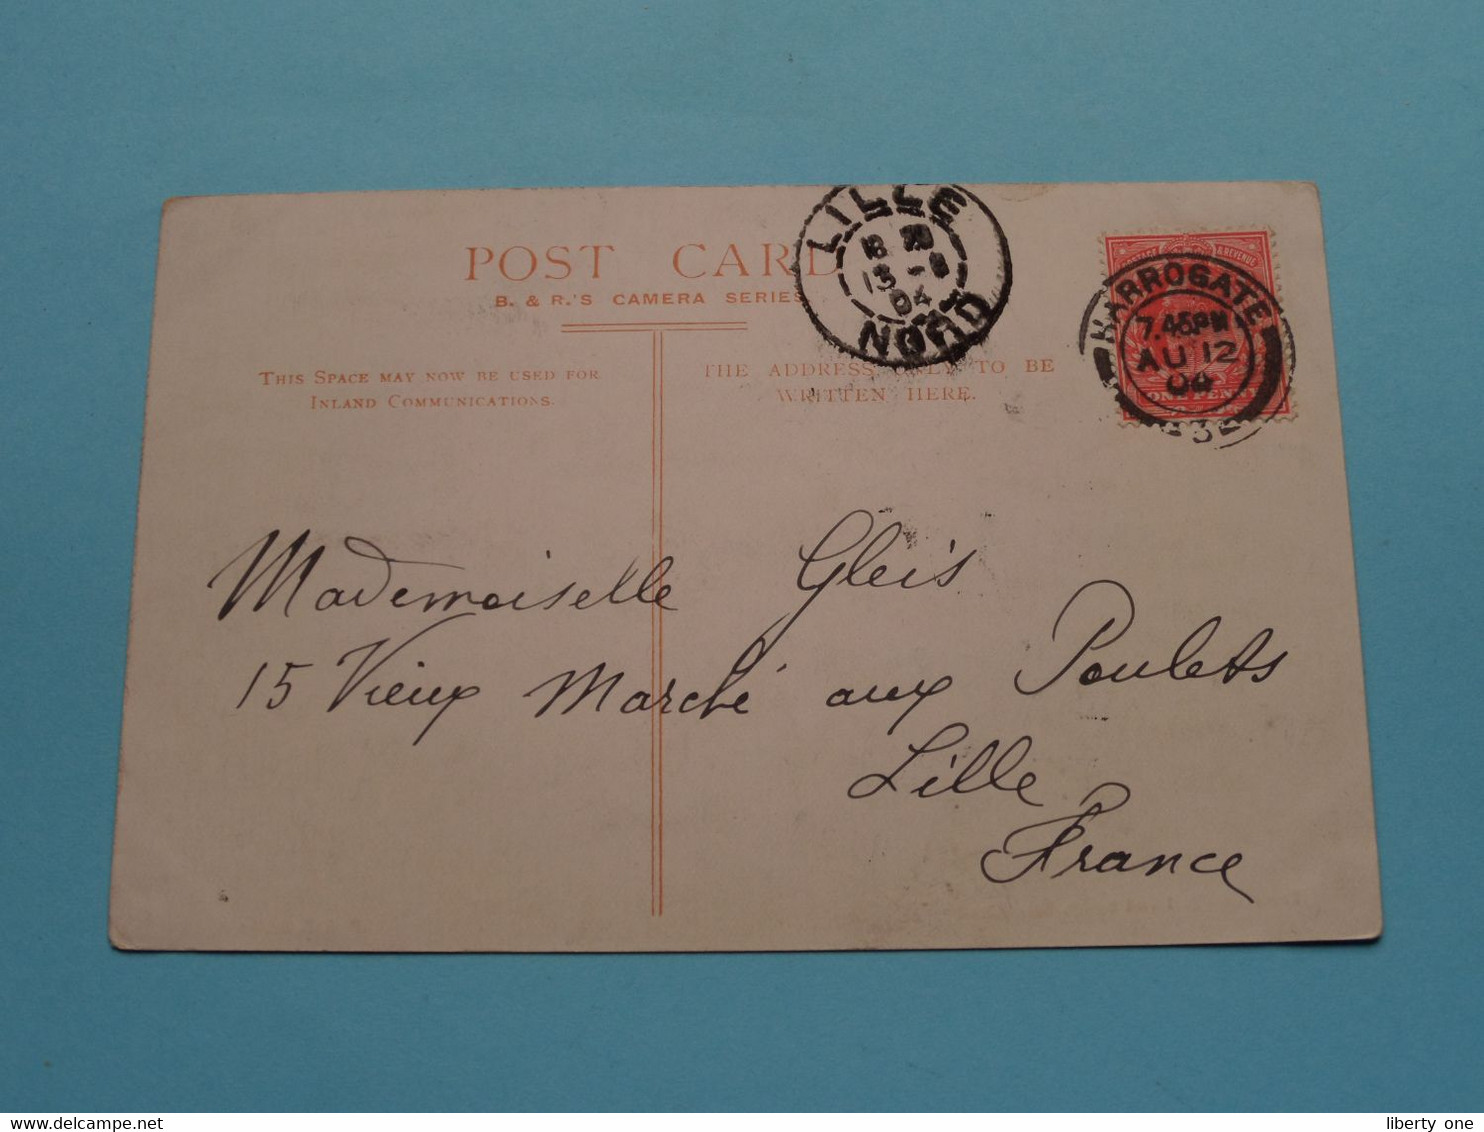 POST CARD
B. & R.'S CAMERA SERIES
THIS SPACE MAY NOW BE USED FOR
INLAND COMMUNICATIONS.
THE ADDRESS ONLY TO BE
WRITTEN HERE.
LILLE
13 - 8
04
NORD
HARROGATE
7.45PM
AU 12
04
REVENUE
ONE PENNY
Mademoiselle Gleis
15 Vieux Marché aux Poulets
Lille
France
liberty one